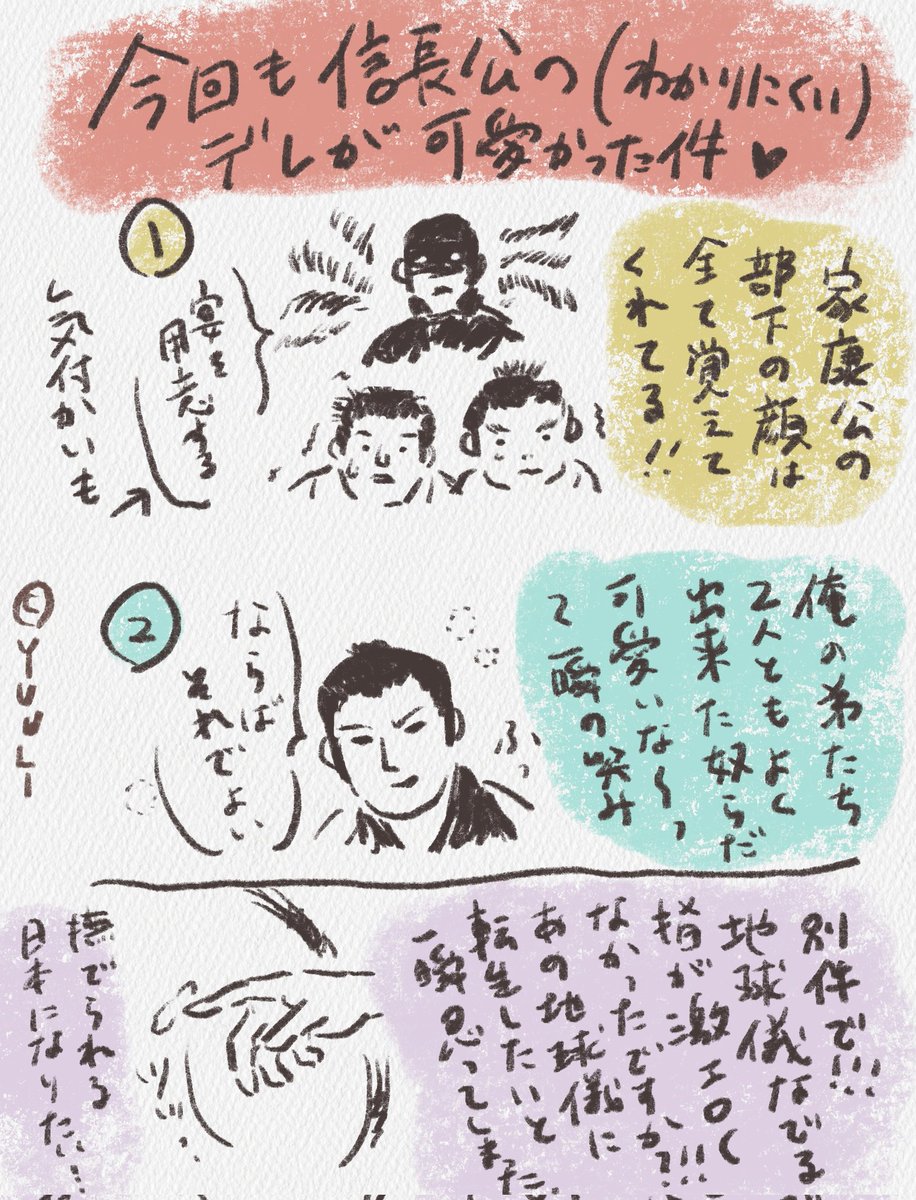 今回も信長公の(わかりにくい)
デレが可愛かった件♥
1
家康公の
部下の顔は
全て覚えて
くれてる!!
宴を
用意する
気付かいも
2
俺の弟たち
2人ともよく
出来た奴らだ
可愛いな〜っ
て瞬の笑み
ふっ
ならば
それでよい
©YUULI
別件で!!!
地球儀なでる
指が激エロく
なかったですか?!!
あの地球儀に
転生したいと
一瞬思ってしまった
ソッ…
撫でられる
日本になりたい…